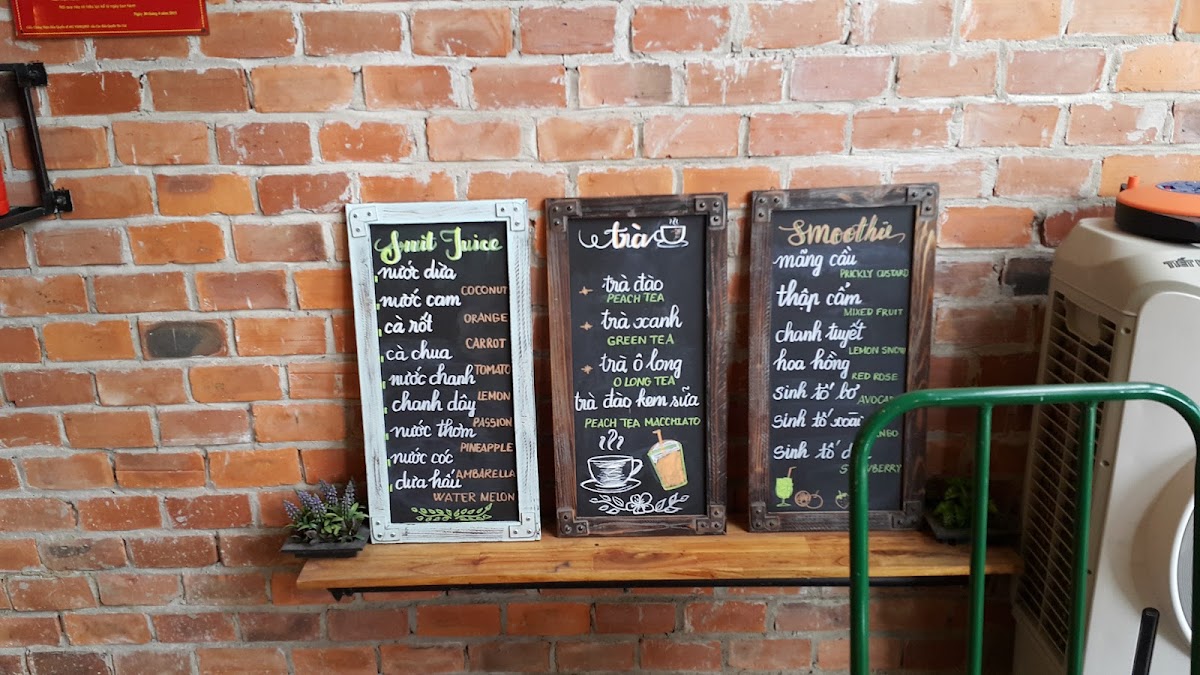 Ngày, 06 tháng 4 năm 2015
Smit Juice
nước dừa
COCONUT
nước cam
ORANGE
cà rốt
CARROT
cà chua
TOMATO
nước chanh
LEMON
chanh dây
PASSION
nước thơm
PINEAPPLE
nước cóc
AMBARELLA
dưa hấu
WATER MELON
trà
trà đào
PEACH TEA
trà xanh
GREEN TEA
trà ô long
O LONG TEA
trà đào kem sữa
PEACH TEA MACCHIATO
Smoothie
mãng cầu
PRICKLY CUSTARD
thập cẩm
MIXED FRUIT
chanh tuyết
LEMON SNOW
hoa hồng
RED ROSE
sinh tố bơ
sinh tố
sinh tố